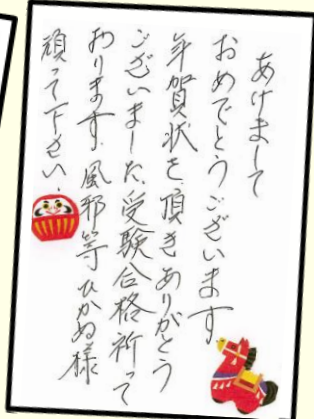 あけまして
おめでとうございます
年賀状を頂きありがとう
ございました、受験合格祈って
おります、風邪等ひかぬ様
頑って下さい、